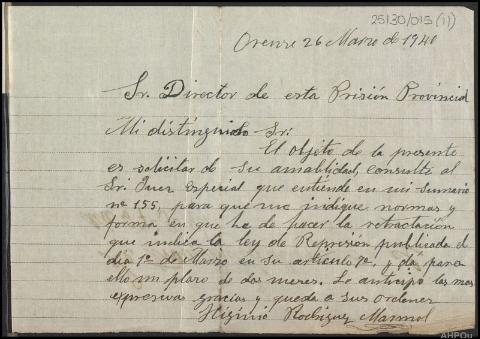 25130/015(1)
Orense 26 Marzo de 1940
Sr. Director de esta Prisión Provincial
Mi distinguido Sr:
El objeto de la presente
es solicitar de su amabilidad, consulte al
Sr. Juez especial que entiende en mi sumario
nº 155, para que me indique normas y
forma en que ha de hacer la retractación
que indica la ley de Represión publicada el
dia 1º de Marzo en su articulo 7º. y da para
ello un plazo de dos meses. Le anticipo las mas
expresivas gracias y queda a sus ordenes
Higinio Rodriguez
AHPOu